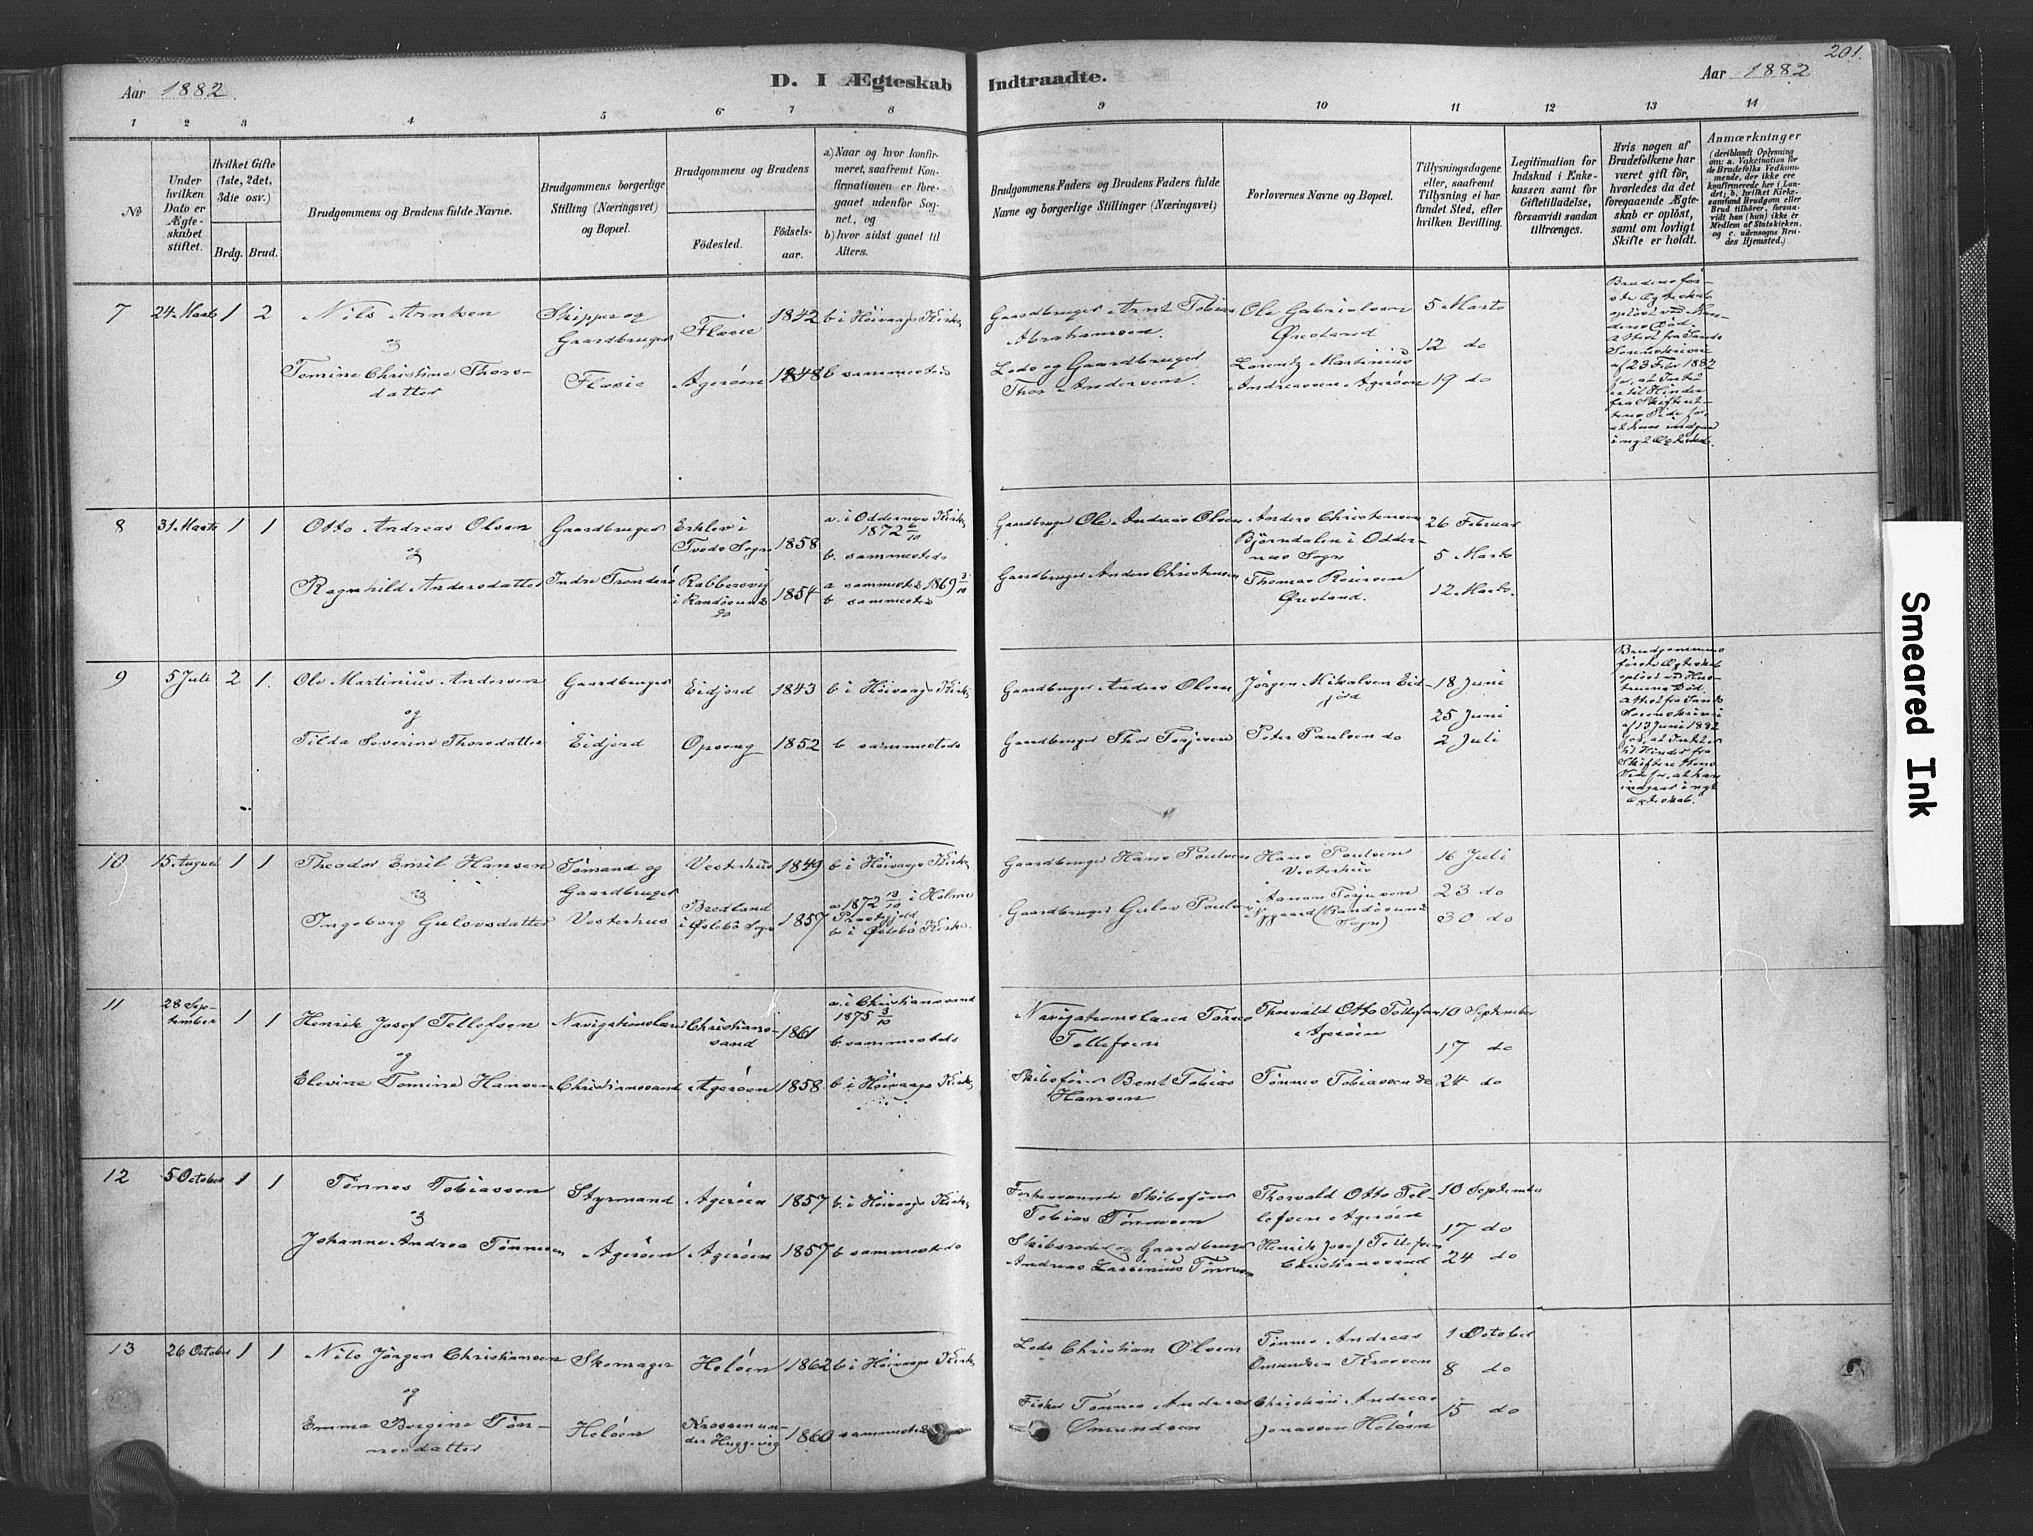 201.
Aar 1882
D. I Ægteskab Indtraadte.
Aar 1882
1 2 3 4 5 6 7 8 9 10 11 12 13 14
No
Under hvilken Dato er Ægteskabet stiftet.
Hvilket Gifte (1ste, 2det, 3die osv.)
Brdg. Brud.
Brudgommens og Brudens fulde Navne.
Brudgommens borgerlige Stilling (Næringsvei) og Bopæl.
Brudgommens og Brudens
Fødested.
Fødsels-aar.
a) Naar og hvor konfirmeret, saafremt Konfirmationen er foregaaet udenfor Sognet, og
b) hvor sidst gaaet til Alters.
Brudgommens Faders og Brudens Faders fulde Navne og borgerlige Stillinger (Næringsvei)
Forlovernes Navne og Bopæl.
Tillysningsdagene eller, saafremt Tillysning ei har fundet Sted, efter hvilken Bevilling.
Legitimation for Indskud i Enkekassen samt for Giftetilladelse, forsaavidt saadan tiltrænges.
Hvis nogen af Brudefolkene har været gift før, hvorledes da det foregaaende Ægteskab er opløst, samt om lovligt Skifte er holdt.
Anmærkninger
(deriblandt Oplysning om: a. Vakcination for de Brudefolks Vedkommende, der ikke ere konfirmerede her i Landet; b. hvilket Kirkesamfund Brudgom eller Brud tilhører, forsaavidt han (hun) ikke er Medlem af Statskirken, og c. udensogns Brudes Hjemsted.)
7 24 Marts 1 2 Nils Arntsen
og
Tomine Christine Thorsdatter
Skipper og Gaardbruger
Flæsie
Flæsie 1842 b i Høivaags Kirke
Agerøen 1848 b sammesteds
Gaardbruger Arnt Tobias Abrahamsen.
Lods og Gaardbruger Thor Andersen.
Ole Gabrielsen Øresland
Lorentz Martinius Andreassen Agerøen
5 Marts
12 do
19 do
Brudens første Ægteskab opløst ved Mandens Død. Attest fra Sands Sorenskriveri af 23 Febr 1882 for, at Intet er til Hinder fra Skifterettens Side for, at hun indgaar i nyt Ægteskab.
8 31 Marts 1 1 Otto Andreas Olsen
og
Ragnhild Andersdatter
Gaardbruger
Indre Trondsrø
Erklev i Tveds Sogn 1858
a. i Oddernæs Kirke 1872 6/10
b. sammesteds
Rabbersvig i Randøsunds do 1854
a sammesteds 1869 3/10
b sammesteds
Gaardbruger Ole Andreas Olsen
Gaardbruger Anders Christensen
Anders Christensen Bjørndalen i Oddernæs Sogn
Thomas Reiersen Øresland.
26 Februar
5 Marts
12 Marts.
9 5 Juli 2 1. Ole Martinius Andersen
og
Tilda Severine Thorsdatter
Gaardbruger
Eidjord
Eidjord 1843 b i Høivaags Kirke
Opseng 1852 b sammesteds
Gaardbruger Anders Olsen
Gaardbruger Thor Terjesen
Jörgen Nikolsen Eidjord
Peter Paulsen do
18 Juni
25 Juni
2 Juli
Brudgommens første Ægteskab opløst ved Hustruens Død. Attest fra Sands Sorenskriveri af 13 Juni 1882 for, at Intet er til Hinder fra Skifterettens Side for, at han indgaar i nyt Ægteskab.
10 15 August 1 1 Theodor Emil Hansen
og
Ingeborg Gulovsdatter
Sømand og Gaardbruger
Vesterhus
Vesterhus 1849 b i Høivaags Kirke
Bredland i Øslebø Sogn 1857
a 1872 13/10 i Holme Præstgjeld
b i Øslebø Kirke.
Gaardbruger Hans Poulsen
Gaardbruger Gulov Poulsen
Hans Poulsen Vesterhus
Aanon Terjesen Nygaard (Randøsunds Sogn)
16 Juli
23 do
30 do
11 28 September 1 1 Henrik Josef Tellefsen
og
Elevine Tomine Hansen
Navigationslærer
Christianssand
Christianssand 1861
a. i Christianssand 1875 3/10
b sammesteds
Agerøen 1858 b i Høivaags Kirke
Navigationslærer Tønnes Tellefsen
Skibsfører Bent Tobias Hansen
Thorvald Otto Tellefsen Agerøen
Tønnes Tobiassen do
10 September
17 do
24 do
12 5 October 1 1 Tønnes Tobiassen
og
Johanne Andrea Tønnesen
Styrmand
Agerøen
Agerøen 1857 b. i Høivaags Kirke
Agerøen 1857 b sammesteds
Forhenværende Skibsfører Tobias Tønnesen
Skibsreder og Gaardbruger Andreas Lassinius Tønnesen
Thorvald Otto Tellefsen Agerøen
Henrik Josef Tellefsen Christianssand
10 September
17 do
24 do
13 26 October 1 1 Nils Jörgen Christiansen
og
Emma Bergine Tønnesdatter
Skomager
Heløen
Heløen 1862 b i Høivaags Kirke
Krossen under Huggevig 1860 sammesteds
Lods Christian Olsen
Fisker Tønnes Andreas Omundsen
Tønnes Andreas Omundsen Krossen
Christian Andreas Jonassen Heløen
1 October
8 do
15 do
Smeared Ink